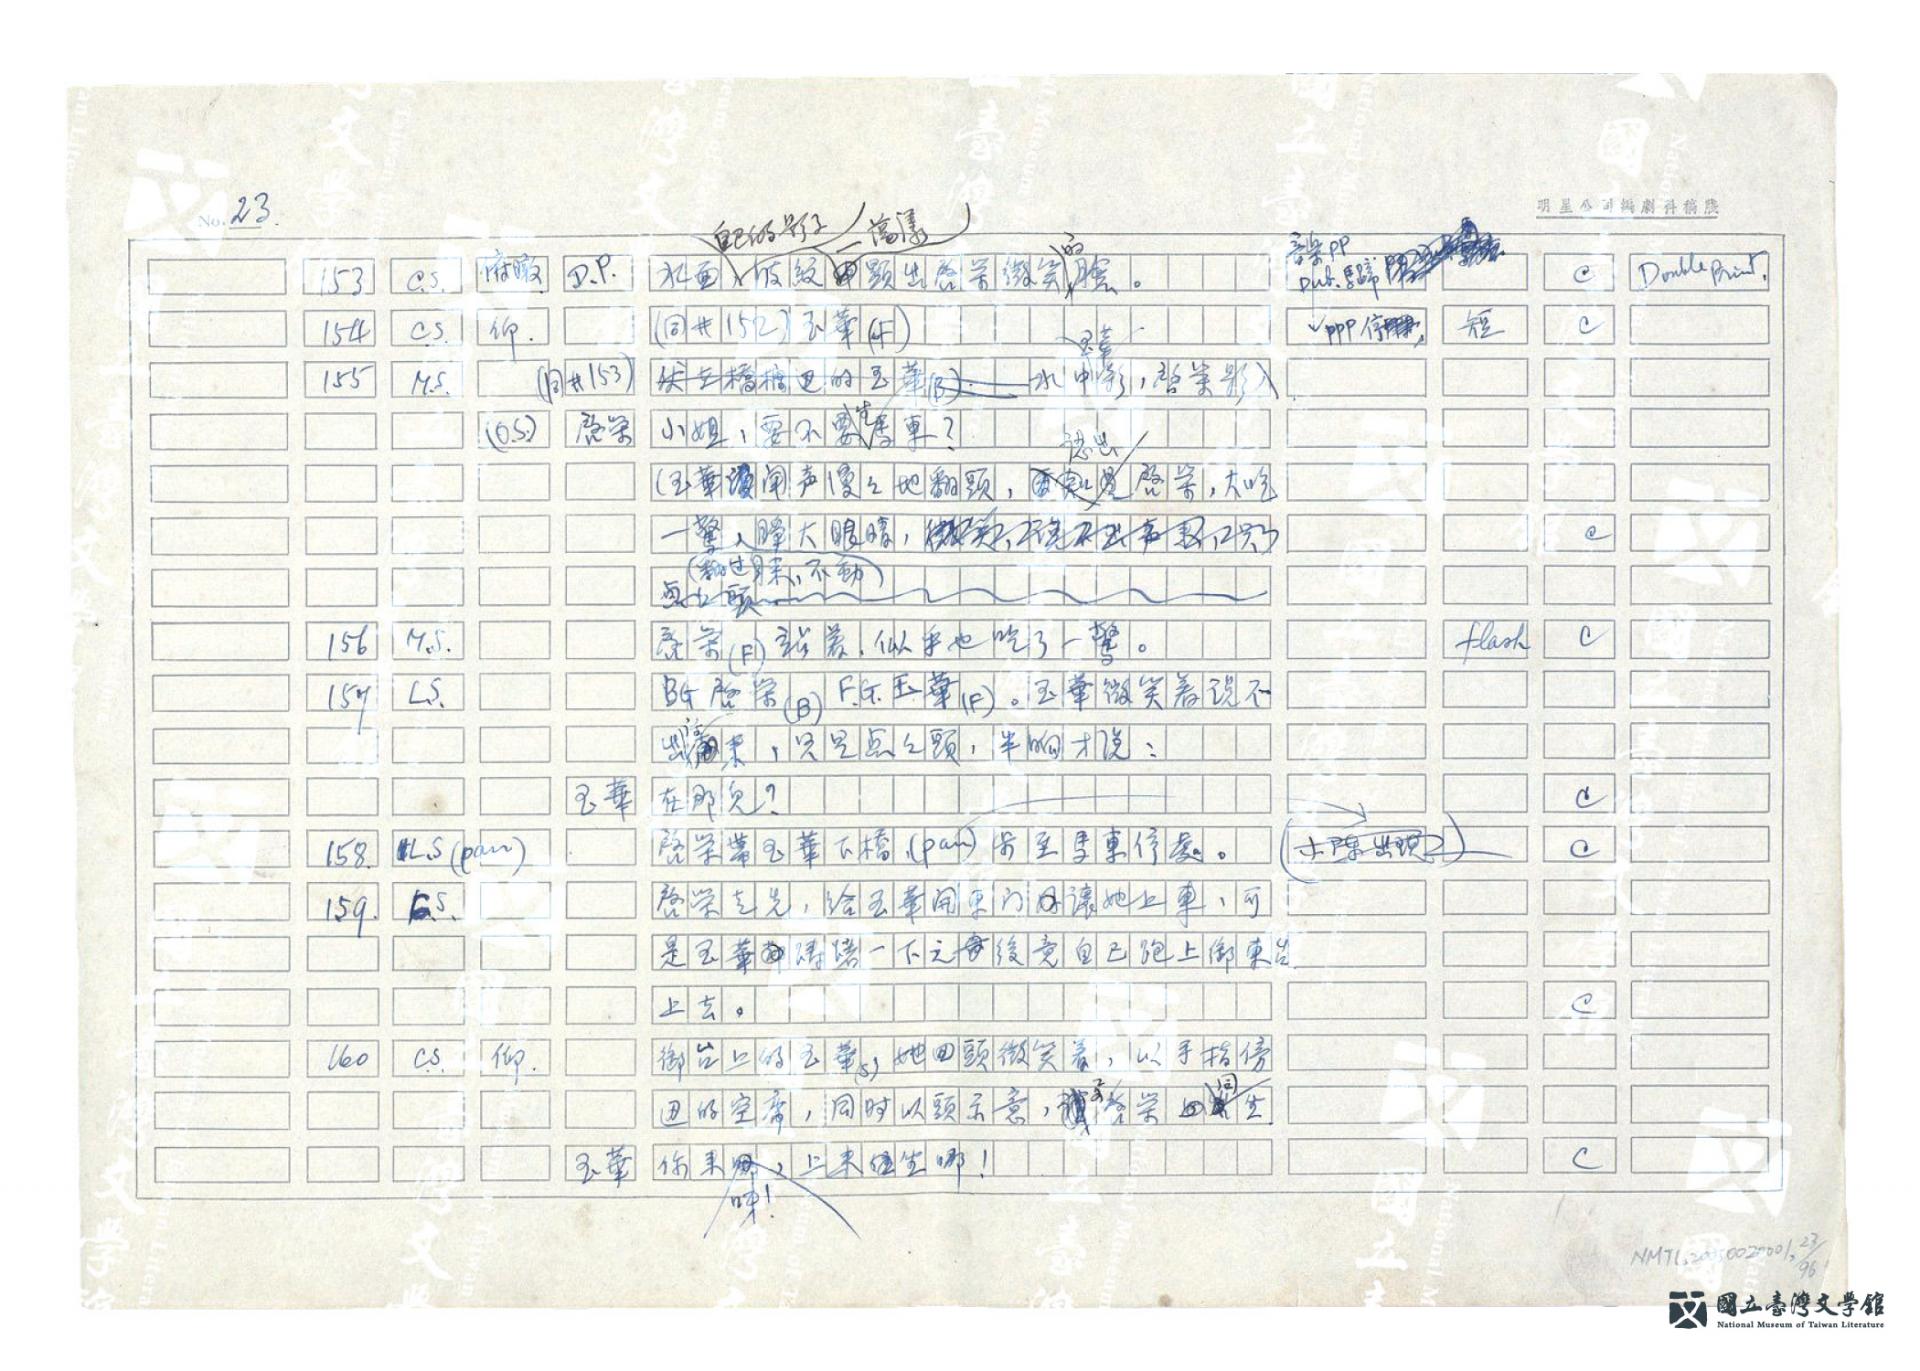 No. 23.
明星公司編劇科稿牋
自己的影子 蕩漾
153 C.S. 俯瞰 D.P. 水面、波紋 顯出啓榮微笑的臉。 音樂PP C Double Print.
154 C.S. 仰. (同#152) 玉華(F) PPP 停 短 C
155 M.S. (同#153) 伏在橋欄邊的玉華(B) 玉華 水中影，啓榮影
(O.S.) 啓榮 小姐，要不要坐馬車？
(玉華 聞声慢々地翻頭， 認出 啓榮，大吃
一驚、睜大眼睛， C
(翻过身来，不動)
点々頭
156 M.S. 啓榮(F) 看着，似乎也吃了一驚。 flash C
157 L.S. BG 啓榮(B) F.G.玉華(F)。玉華微笑着说不
出 来，只是点々頭，半晌才说：
玉華 在那兒？ C
158. L.S (pan) 啓榮帶玉華下橋，(pan) 步至馬車停處。 C
159. S. 啓榮走先，給玉華開車门 讓她上車，可
是玉華 躊躇一下之 後竟自己跑上御車台
上去。 C
160 C.S. 仰. 御台上的玉華(S) 她回頭微笑着，以手指傍
边的空席，同時以頭示意， 啓榮 坐
玉華 你来 、上来 坐哪！ C
NMTL20050020001. 23/96
國立臺灣文學館
National Museum of Taiwan Literature